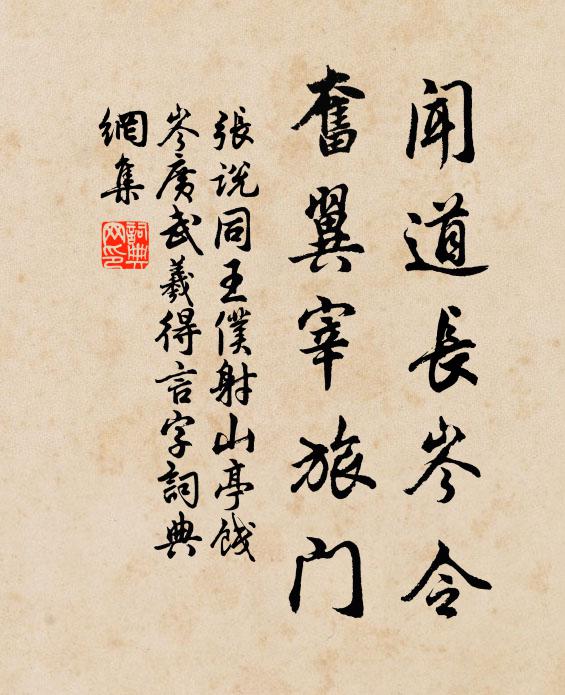 聞道長岑令
奮翼宰旅門
張說同王僕射山亭餞
岑廣武羲得言字詞典
網集
詞典
网印